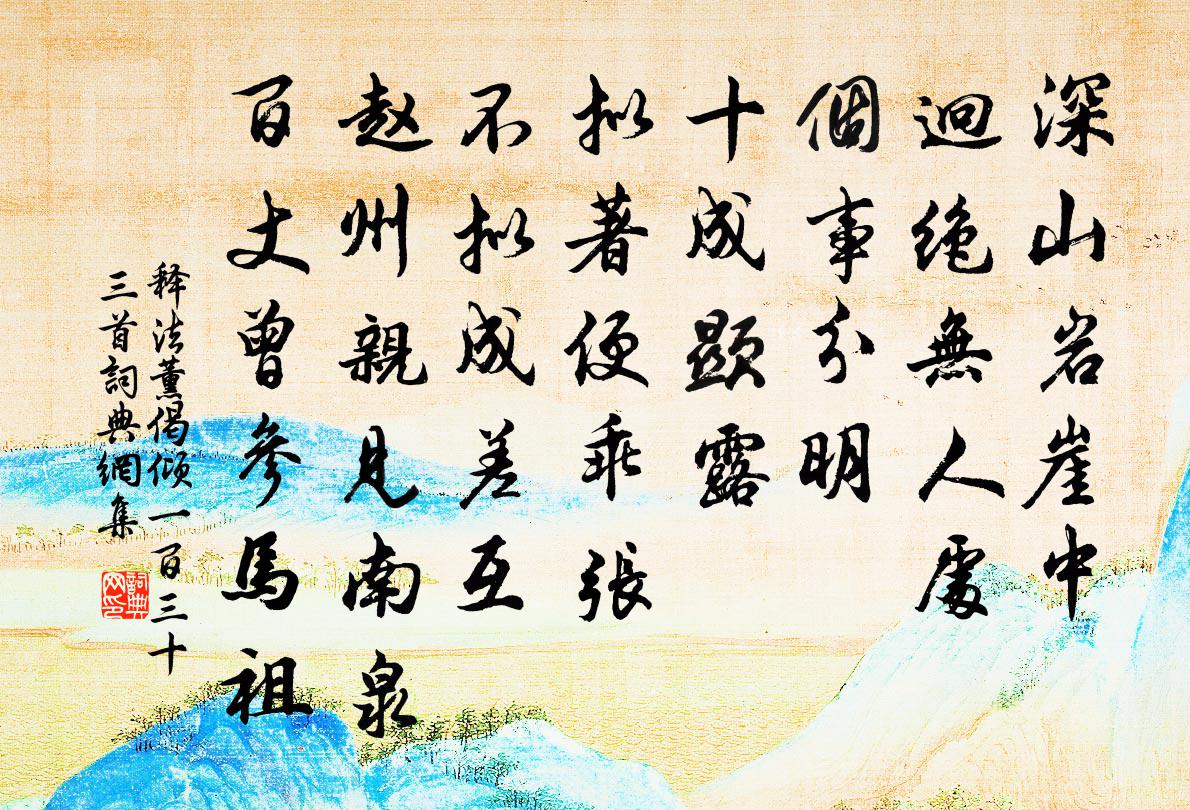 深山岩崖中
迥絶無人處
個事分明
十成顯露
拟著便乖張
不拟成差互
赵州親見南泉
百丈曾參馬祖
释法薰偈倾一百三十
三首詞典網集
詞典
网印